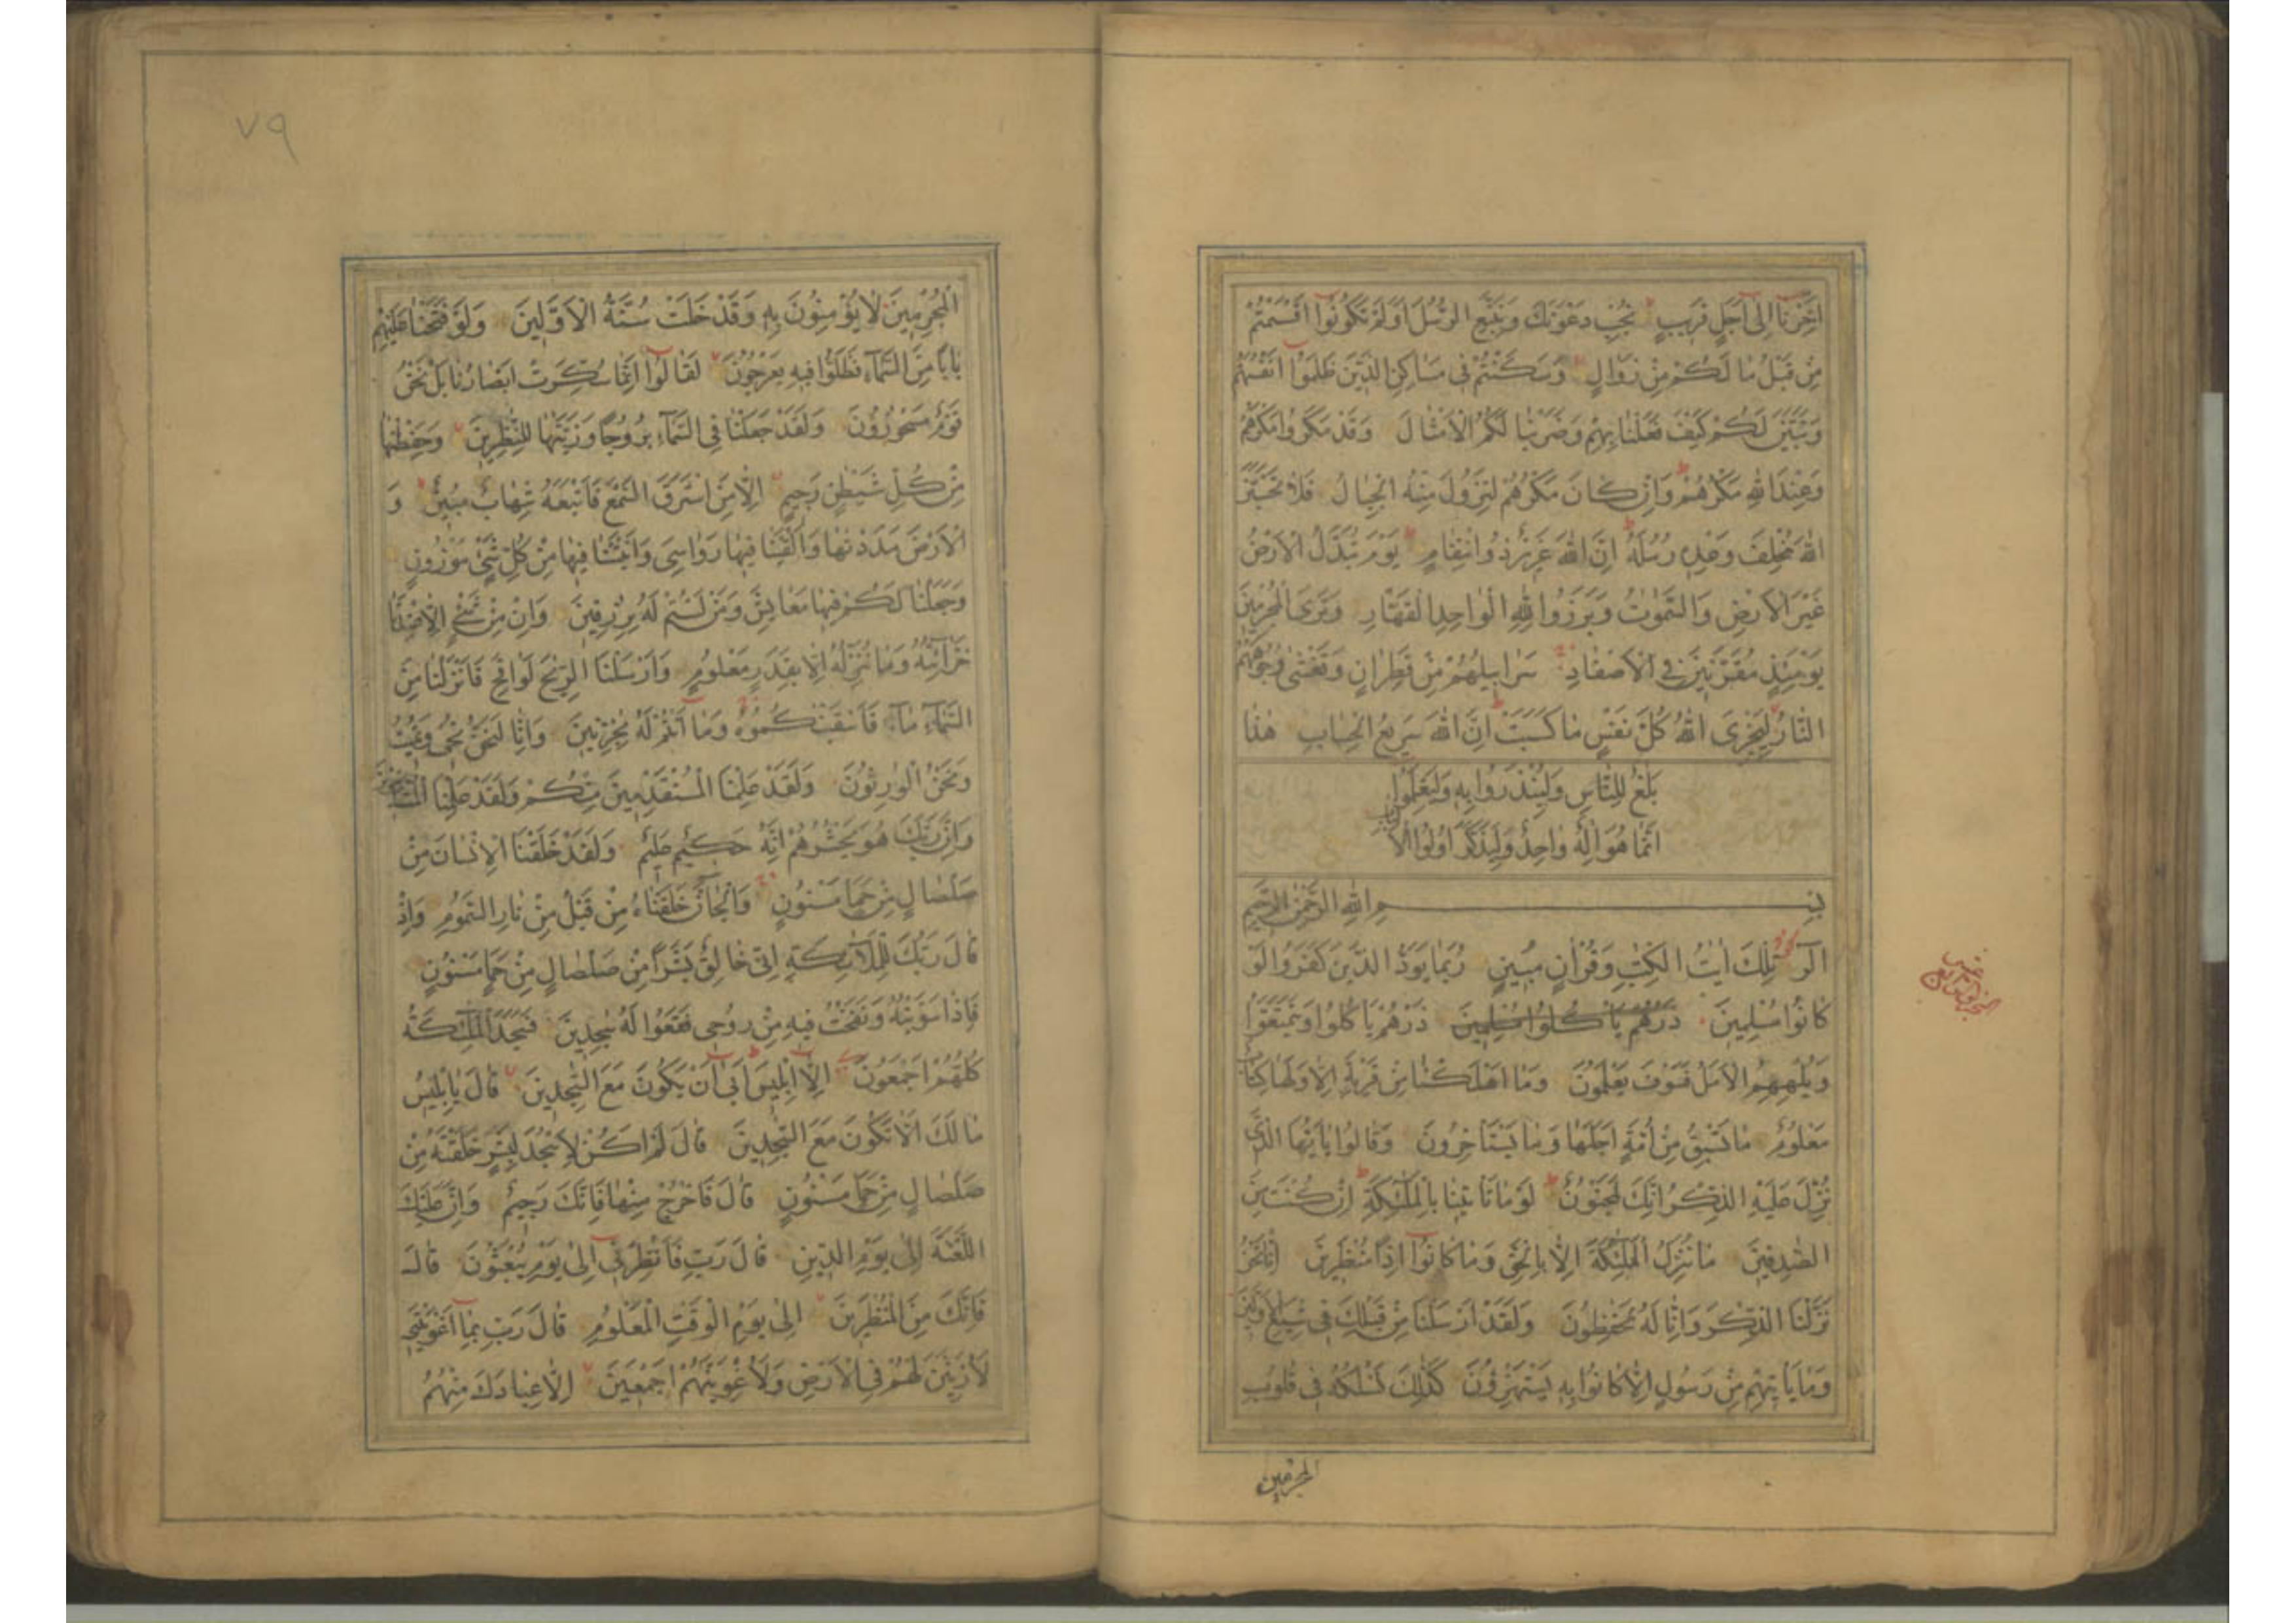 اَخِّرْنَا اِلٰى اَجَلٍ قَرِيبٍ نُجِبْ دَعْوَتَكَ وَنَتَّبِعِ الرُّسُلَ اَوَلَمْ تَكُونُوا اَقْسَمْتُمْ
مِنْ قَبْلُ مَا لَكُمْ مِنْ زَوَالٍ وَسَكَنْتُمْ فِى مَسَاكِنِ الَّذِينَ ظَلَمُوا اَنْفُسَهُمْ
وَتَبَيَّنَ لَكُمْ كَيْفَ فَعَلْنَا بِهِمْ وَضَرَبْنَا لَكُمُ الْاَمْثَالَ وَقَدْ مَكَرُوا مَكْرَهُمْ
وَعِنْدَ اللّٰهِ مَكْرُهُمْ وَاِنْ كَانَ مَكْرُهُمْ لِتَزُولَ مِنْهُ الْجِبَالُ فَلَا تَحْسَبَنَّ
اللّٰهَ مُخْلِفَ وَعْدِهِ رُسُلَهُ اِنَّ اللّٰهَ عَزِيزٌ ذُو انْتِقَامٍ يَوْمَ تُبَدَّلُ الْاَرْضُ
غَيْرَ الْاَرْضِ وَالسَّمٰوٰتُ وَبَرَزُوا لِلّٰهِ الْوَاحِدِ الْقَهَّارِ وَتَرَى الْمُجْرِمِينَ
يَوْمَئِذٍ مُقَرَّنِينَ فِى الْاَصْفَادِ سَرَابِيلُهُمْ مِنْ قَطِرَانٍ وَتَغْشٰى وُجُوهَهُمُ
النَّارُ لِيَجْزِىَ اللّٰهُ كُلَّ نَفْسٍ مَا كَسَبَتْ اِنَّ اللّٰهَ سَرِيعُ الْحِسَابِ هٰذَا
بَلٰغٌ لِلنَّاسِ وَلِيُنْذَرُوا بِهِ وَلِيَعْلَمُوا
اَنَّمَا هُوَ اِلٰهٌ وَاحِدٌ وَلِيَذَّكَّرَ اُولُوا الْاَلْبَابِ
بِسْمِ اللّٰهِ الرَّحْمٰنِ الرَّحِيمِ
الٓرٰ تِلْكَ اٰيٰتُ الْكِتٰبِ وَقُرْاٰنٍ مُبِينٍ رُبَمَا يَوَدُّ الَّذِينَ كَفَرُوا لَوْ
كَانُوا مُسْلِمِينَ ذَرْهُمْ يَأْكُلُوا مُسْلِمِينَ ذَرْهُمْ يَأْكُلُوا وَيَتَمَتَّعُوا
وَيُلْهِهِمُ الْاَمَلُ فَسَوْفَ يَعْلَمُونَ وَمَا اَهْلَكْنَا مِنْ قَرْيَةٍ اِلَّا وَلَهَا كِتَابٌ
مَعْلُومٌ مَا تَسْبِقُ مِنْ اُمَّةٍ اَجَلَهَا وَمَا يَسْتَأْخِرُونَ وَقَالُوا يَا اَيُّهَا الَّذِى
نُزِّلَ عَلَيْهِ الذِّكْرُ اِنَّكَ لَمَجْنُونٌ لَوْ مَا تَأْتِينَا بِالْمَلٰٓئِكَةِ اِنْ كُنْتَ مِنَ
الصّٰدِقِينَ مَا نُنَزِّلُ الْمَلٰٓئِكَةَ اِلَّا بِالْحَقِّ وَمَا كَانُوا اِذًا مُنْظَرِينَ اِنَّا نَحْنُ
نَزَّلْنَا الذِّكْرَ وَاِنَّا لَهُ لَحٰفِظُونَ وَلَقَدْ اَرْسَلْنَا مِنْ قَبْلِكَ فِى شِيَعِ الْاَوَّلِينَ
وَمَا يَأْتِيهِمْ مِنْ رَسُولٍ اِلَّا كَانُوا بِهِ يَسْتَهْزِؤُنَ كَذٰلِكَ نَسْلُكُهُ فِى قُلُوبِ
المجرمين
٧٩
الْمُجْرِمِينَ لَا يُؤْمِنُونَ بِهِ وَقَدْ خَلَتْ سُنَّةُ الْاَوَّلِينَ وَلَوْ فَتَحْنَا عَلَيْهِمْ
بَابًا مِنَ السَّمَاءِ فَظَلُّوا فِيهِ يَعْرُجُونَ لَقَالُوا اِنَّمَا سُكِّرَتْ اَبْصَارُنَا بَلْ نَحْنُ
قَوْمٌ مَسْحُورُونَ وَلَقَدْ جَعَلْنَا فِى السَّمَاءِ بُرُوجًا وَزَيَّنّٰهَا لِلنّٰظِرِينَ وَحَفِظْنٰهَا
مِنْ كُلِّ شَيْطٰنٍ رَجِيمٍ اِلَّا مَنِ اسْتَرَقَ السَّمْعَ فَاَتْبَعَهُ شِهَابٌ مُبِينٌ وَ
الْاَرْضَ مَدَدْنٰهَا وَاَلْقَيْنَا فِيهَا رَوَاسِىَ وَاَنْبَتْنَا فِيهَا مِنْ كُلِّ شَىْءٍ مَوْزُونٍ
وَجَعَلْنَا لَكُمْ فِيهَا مَعَايِشَ وَمَنْ لَسْتُمْ لَهُ بِرٰزِقِينَ وَاِنْ مِنْ شَىْءٍ اِلَّا عِنْدَنَا
خَزَآئِنُهُ وَمَا نُنَزِّلُهُ اِلَّا بِقَدَرٍ مَعْلُومٍ وَاَرْسَلْنَا الرِّيٰحَ لَوَاقِحَ فَاَنْزَلْنَا مِنَ
السَّمَاءِ مَاءً فَاَسْقَيْنٰكُمُوهُ وَمَا اَنْتُمْ لَهُ بِخٰزِنِينَ وَاِنَّا لَنَحْنُ نُحْىِ وَنُمِيتُ
وَنَحْنُ الْوٰرِثُونَ وَلَقَدْ عَلِمْنَا الْمُسْتَقْدِمِينَ مِنْكُمْ وَلَقَدْ عَلِمْنَا الْمُسْتَأْخِرِينَ
وَاِنَّ رَبَّكَ هُوَ يَحْشُرُهُمْ اِنَّهُ حَكِيمٌ عَلِيمٌ وَلَقَدْ خَلَقْنَا الْاِنْسَانَ مِنْ
صَلْصَالٍ مِنْ حَمَإٍ مَسْنُونٍ وَالْجَانَّ خَلَقْنَاهُ مِنْ قَبْلُ مِنْ نَارِ السَّمُومِ وَاِذْ
قَالَ رَبُّكَ لِلْمَلٰٓئِكَةِ اِنِّى خَالِقٌ بَشَرًا مِنْ صَلْصَالٍ مِنْ حَمَإٍ مَسْنُونٍ
فَاِذَا سَوَّيْتُهُ وَنَفَخْتُ فِيهِ مِنْ رُوحِى فَقَعُوا لَهُ سٰجِدِينَ فَسَجَدَ الْمَلٰٓئِكَةُ
كُلُّهُمْ اَجْمَعُونَ اِلَّا اِبْلِيسَ اَبٰى اَنْ يَكُونَ مَعَ السّٰجِدِينَ قَالَ يَا اِبْلِيسُ
مَا لَكَ اَلَّا تَكُونَ مَعَ السّٰجِدِينَ قَالَ لَمْ اَكُنْ لِاَسْجُدَ لِبَشَرٍ خَلَقْتَهُ مِنْ
صَلْصَالٍ مِنْ حَمَإٍ مَسْنُونٍ قَالَ فَاخْرُجْ مِنْهَا فَاِنَّكَ رَجِيمٌ وَاِنَّ عَلَيْكَ
اللَّعْنَةَ اِلٰى يَوْمِ الدِّينِ قَالَ رَبِّ فَاَنْظِرْنِى اِلٰى يَوْمِ يُبْعَثُونَ قَالَ
فَاِنَّكَ مِنَ الْمُنْظَرِينَ اِلٰى يَوْمِ الْوَقْتِ الْمَعْلُومِ قَالَ رَبِّ بِمَا اَغْوَيْتَنِى
لَاُزَيِّنَنَّ لَهُمْ فِى الْاَرْضِ وَلَاُغْوِيَنَّهُمْ اَجْمَعِينَ اِلَّا عِبَادَكَ مِنْهُمُ